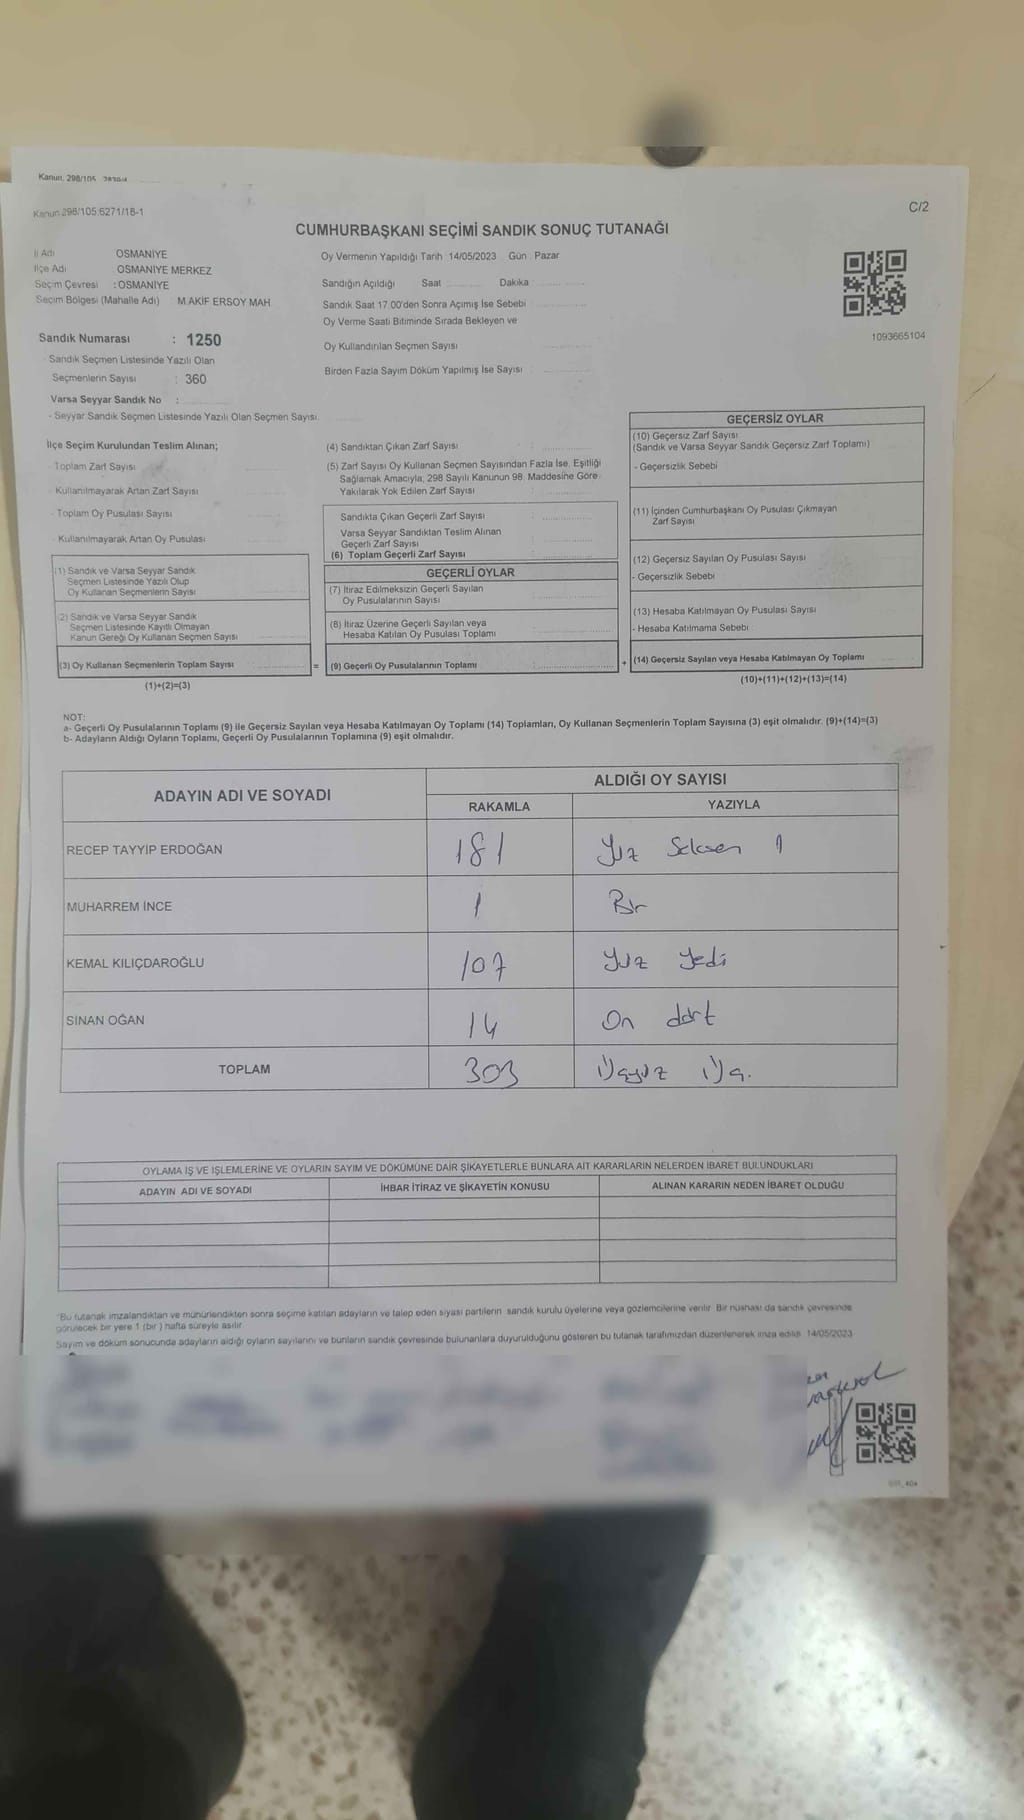 Kanun. 298/105
Kanun 298/105.6271/18-1
C/2
CUMHURBAŞKANI SEÇİMİ SANDIK SONUÇ TUTANAĞI
İl Adı OSMANİYE
İlçe Adı OSMANİYE MERKEZ
Seçim Çevresi : OSMANİYE
Seçim Bölgesi (Mahalle Adı) M.AKİF ERSOY MAH
Oy Vermenin Yapıldığı Tarih 14/05/2023 Gün Pazar
Sandığın Açıldığı Saat Dakika
Sandık Saat 17:00'den Sonra Açımış İse Sebebi
Oy Verme Saati Bitiminde Sırada Bekleyen ve
Oy Kullandırılan Seçmen Sayısı
Birden Fazla Sayım Döküm Yapılmış İse Sayısı
1093665104
Sandık Numarası : 1250
Sandık Seçmen Listesinde Yazılı Olan
Seçmenlerin Sayısı : 360
Varsa Seyyar Sandık No :
- Seyyar Sandık Seçmen Listesinde Yazılı Olan Seçmen Sayısı
İlçe Seçim Kurulundan Teslim Alınan;
- Toplam Zarf Sayısı
- Kullanılmayarak Artan Zarf Sayısı
- Toplam Oy Pusulası Sayısı
- Kullanılmayarak Artan Oy Pusulası
(1) Sandık ve Varsa Seyyar Sandık
Seçmen Listesinde Yazılı Olup
Oy Kullanan Seçmenlerin Sayısı
(2) Sandık ve Varsa Seyyar Sandık
Seçmen Listesinde Kayıtlı Olmayan
Kanun Gereği Oy Kullanan Seçmen Sayısı
(3) Oy Kullanan Seçmenlerin Toplam Sayısı
(1)+(2)=(3)
(4) Sandıktan Çıkan Zarf Sayısı :
(5) Zarf Sayısı Oy Kullanan Seçmen Sayısından Fazla İse, Eşitliği
Sağlamak Amacıyla, 298 Sayılı Kanunun 98. Maddesine Göre
Yakılarak Yok Edilen Zarf Sayısı
Sandıkta Çıkan Geçerli Zarf Sayısı
Varsa Seyyar Sandıktan Teslim Alınan
Geçerli Zarf Sayısı
(6) Toplam Geçerli Zarf Sayısı
GEÇERLİ OYLAR
(7) İtiraz Edilmeksizin Geçerli Sayılan
Oy Pusulalarının Sayısı
(8) İtiraz Üzerine Geçerli Sayılan veya
Hesaba Katılan Oy Pusulası Toplamı
= (9) Geçerli Oy Pusulalarının Toplamı
GEÇERSİZ OYLAR
(10) Geçersiz Zarf Sayısı
(Sandık ve Varsa Seyyar Sandık Geçersiz Zarf Toplamı)
- Geçersizlik Sebebi
(11) İçinden Cumhurbaşkanı Oy Pusulası Çıkmayan
Zarf Sayısı
(12) Geçersiz Sayılan Oy Pusulası Sayısı
- Geçersizlik Sebebi
(13) Hesaba Katılmayan Oy Pusulası Sayısı
- Hesaba Katılmama Sebebi
+ (14) Geçersiz Sayılan veya Hesaba Katılmayan Oy Toplamı
(10)+(11)+(12)+(13)=(14)
NOT:
a- Geçerli Oy Pusulalarının Toplamı (9) ile Geçersiz Sayılan veya Hesaba Katılmayan Oy Toplamı (14) Toplamları, Oy Kullanan Seçmenlerin Toplam Sayısına (3) eşit olmalıdır. (9)+(14)=(3)
b- Adayların Aldığı Oyların Toplamı, Geçerli Oy Pusulalarının Toplamına (9) eşit olmalıdır.
ADAYIN ADI VE SOYADI ALDIĞI OY SAYISI
RAKAMLA YAZIYLA
RECEP TAYYİP ERDOĞAN 181 Yüz Seksen 1
MUHARREM İNCE 1 Bir
KEMAL KILIÇDAROĞLU 107 Yüz Yedi
SİNAN OĞAN 14 On dört
TOPLAM 303
OYLAMA İŞ VE İŞLEMLERİNE VE OYLARIN SAYIM VE DÖKÜMÜNE DAİR ŞİKAYETLERLE BUNLARA AİT KARARLARIN NELERDEN İBARET BULUNDUKLARI
ADAYIN ADI VE SOYADI İHBAR İTİRAZ VE ŞİKAYETİN KONUSU ALINAN KARARIN NEDEN İBARET OLDUĞU
*Bu tutanak imzalandıktan ve mühürlendikten sonra seçime katılan adayların ve talep eden siyasi partilerin sandık kurulu üyelerine veya gözlemcilerine verilir. Bir nüshası da sandık çevresinde
görülecek bir yere 1 (bir) hafta süreyle asılır.
Sayım ve döküm sonucunda adayların aldığı oyların sayılarını ve bunların sandık çevresinde bulunanlara duyurulduğunu gösteren bu tutanak tarafımızdan düzenlenerek imza edildi. 14/05/2023